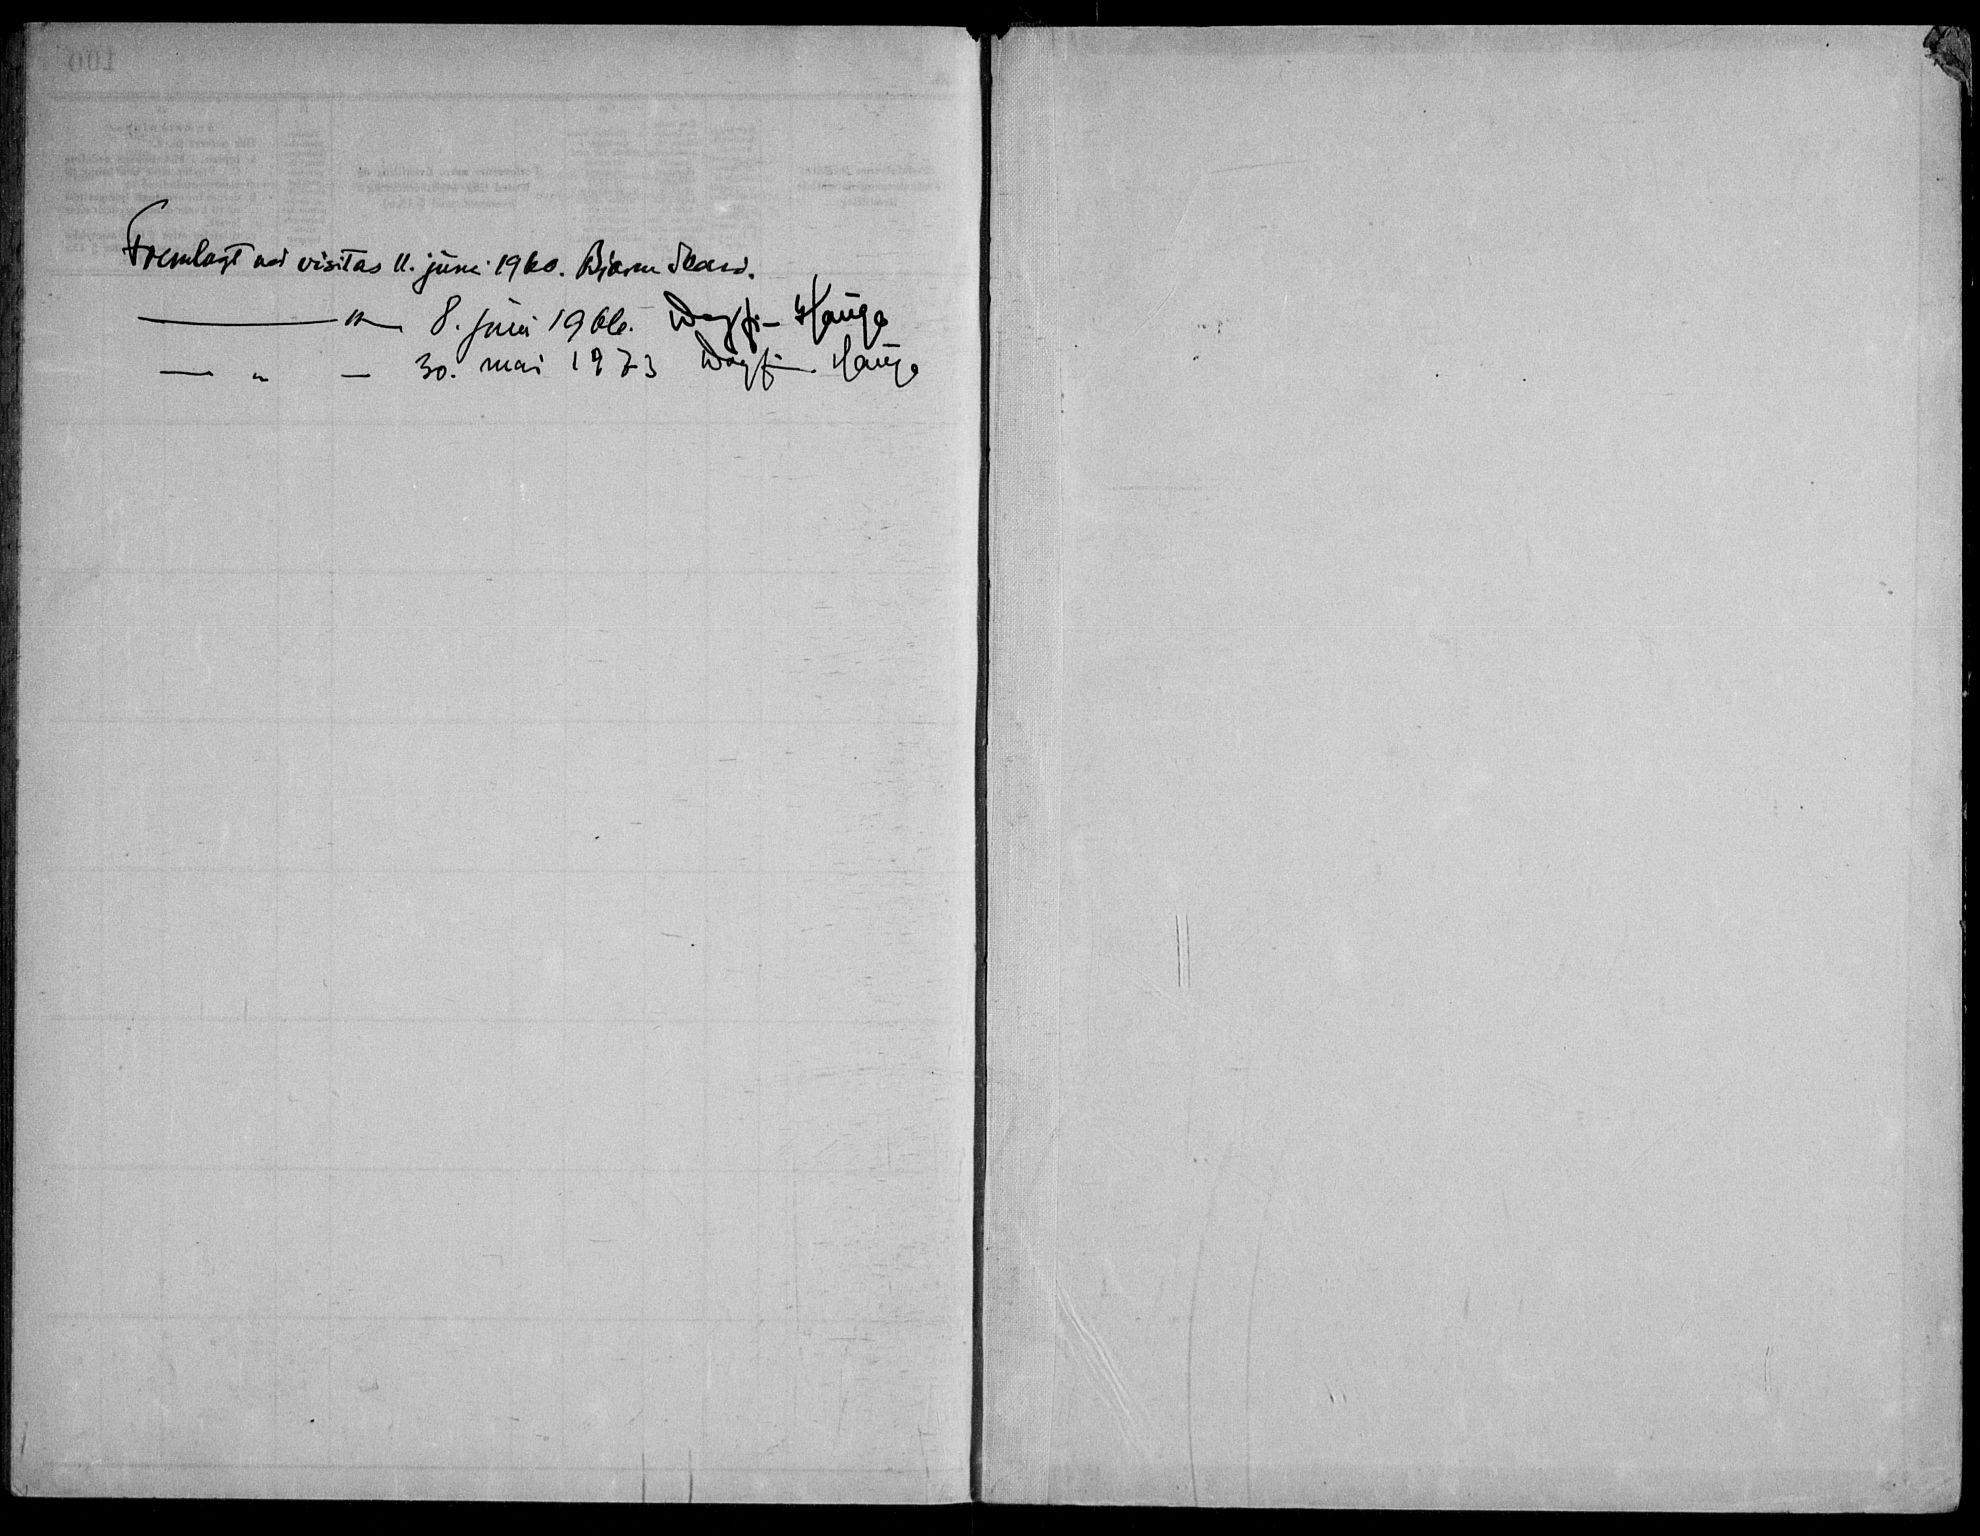 Fremlagt ved visitas 11. juni 1960. Bjarne Skard.
— " — 8. juni 1966. Dagfinn Hauge
— " — 30. mai 1973 Dagfinn Hauge